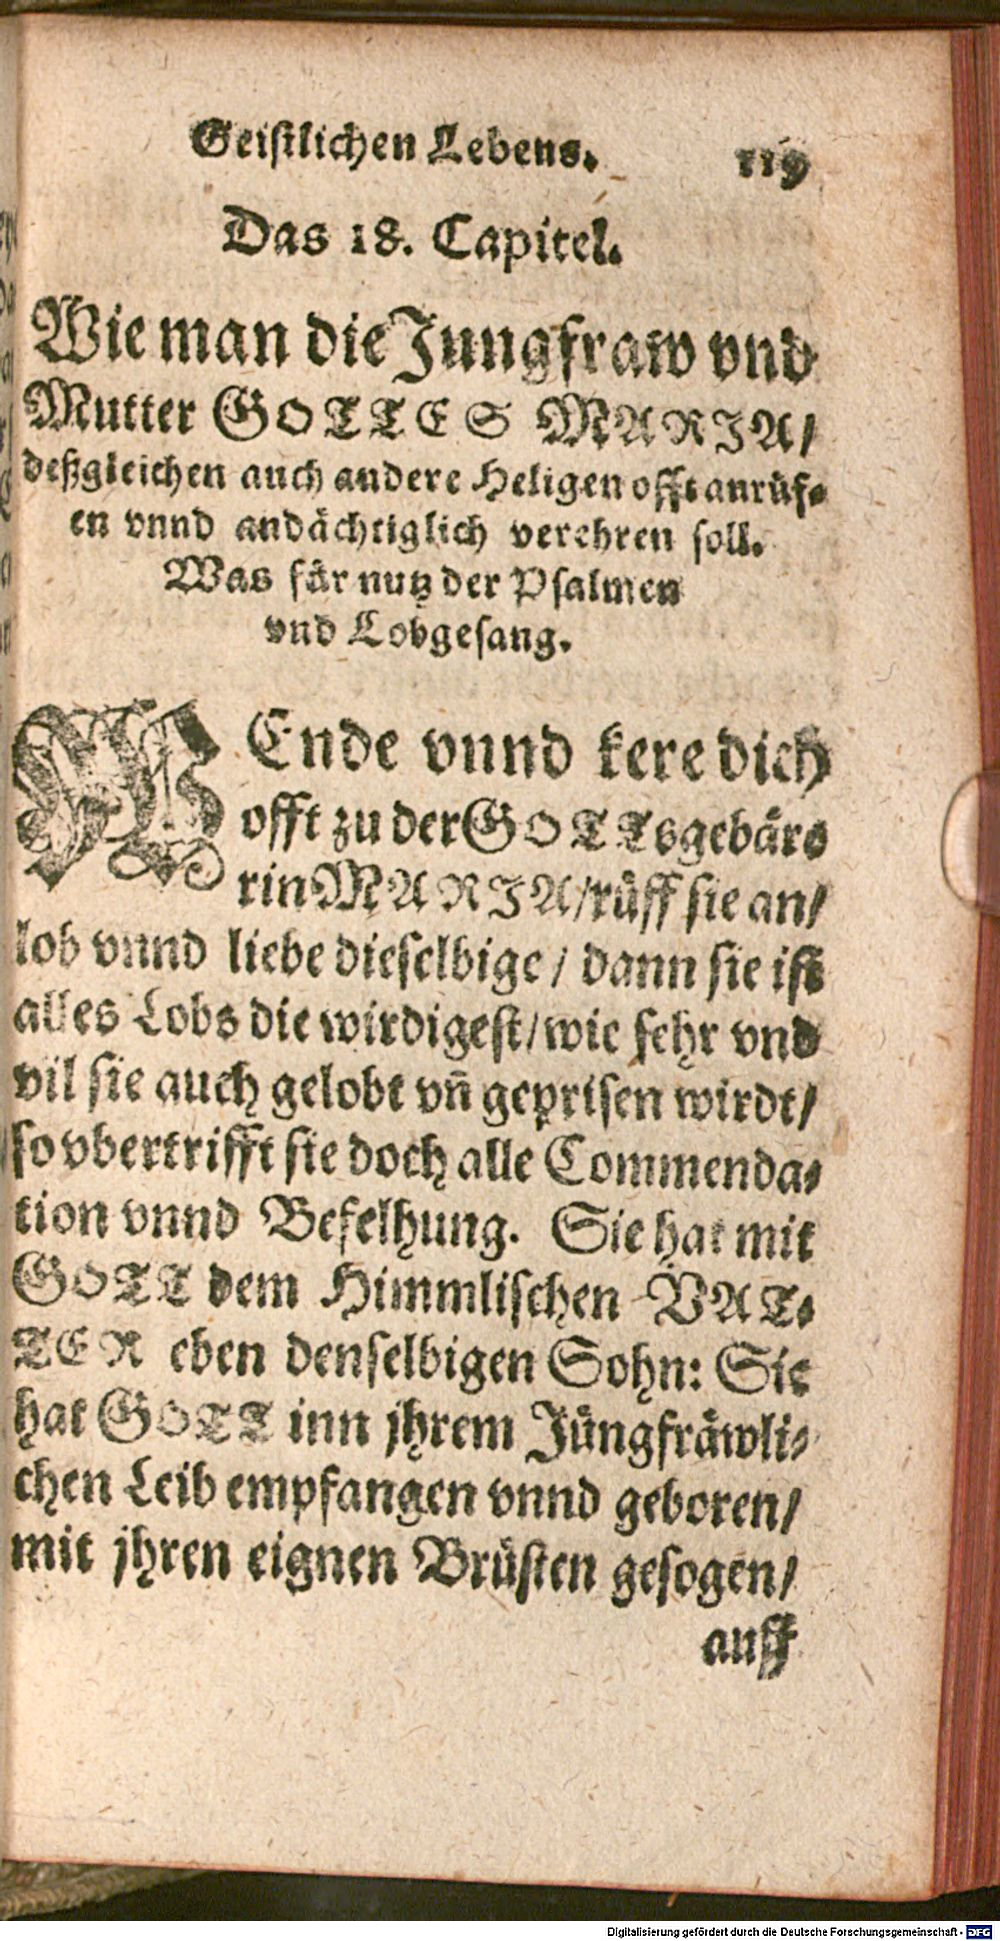 Geistlichen Lebens. 119
Das 18. Capitel.
Wie man die Jungfraw vnd
Mutter GOTTES MARIA/
deßgleichen auch andere Heligen offt anrůf-
en vnnd andächtiglich verehren soll.
Was får nutz der Psalmen
vnd Lobgesang.
WEnde vnnd kere dich
offt zu der GOTTsgebäre
rin MARIA/růff sie an/
lob vnnd liebe dieselbige / dann sie ist
alles Lobs die wirdigest/wie sehr vnd
vil sie auch gelobt vñ geprisen wirdt/
so vbertrifft sie doch alle Commenda-
tion vnnd Befelhung. Sie hat mit
GOTT dem Himmlischen VAT-
TER eben denselbigen Sohn: Sie
hat GOTT inn jhrem Jüngfräwli-
chen Leib empfangen vnnd geboren/
mit jhren eignen Brüsten gesogen/
auff
Digitalisierung gefördert durch die Deutsche Forschungsgemeinschaft - DFG